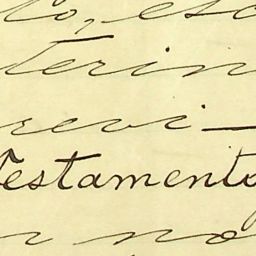 to, esc
terin
revi-
Testamento
r no